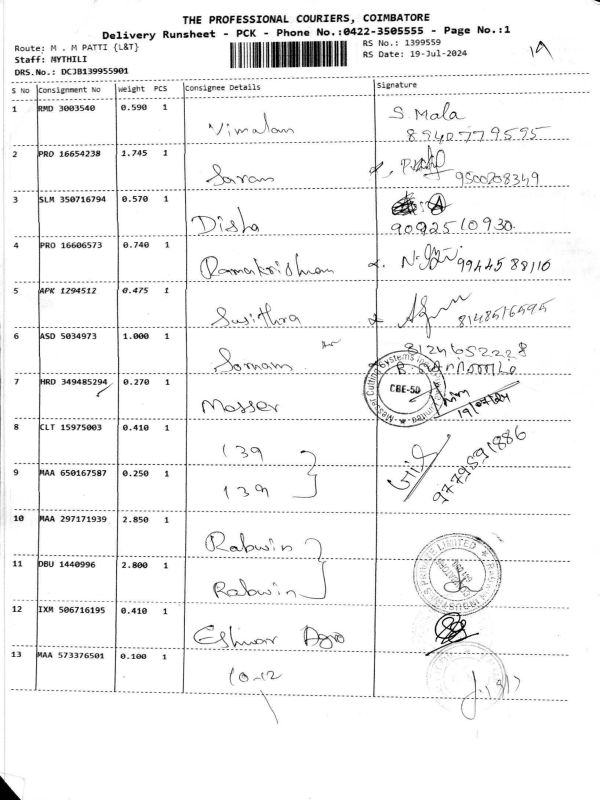 THE PROFESSIONAL COURIERS, COIMBATORE
Delivery Runsheet - PCK - Phone No.:0422-3505555 - Page No.:1
Route: M . M PATTI {L&T}
RS No.: 1399559
Staff: MYTHILI
RS Date: 19-Jul-2024
19
DRS.No.: DCJB139955901
S No Consignment No Weight PCS Consignee Details Signature
1 RMD 3003540 0.590 1 Vimalan S. Mala
8940779595
2 PRO 16654238 1.745 1 Saran 9500208349
3 SLM 350716794 0.570 1 Disha 9092510930
4 PRO 16606573 0.740 1 Ramakrishnan 9944588116
5 APK 1294512 0.475 1 Susithra 8148516595
6 ASD 5034973 1.000 1 Sornam 8124652228
7 HRD 349485294 0.270 1 Messer
Messer Cutting Systems India Private Limited
CBE-50
19/07/24
8 CLT 15975003 0.410 1 139
9779591886
9 MAA 650167587 0.250 1 139
10 MAA 297171939 2.850 1 Rabwin
11 DBU 1440996 2.800 1 Rabwin
PRIVATE LIMITED
12 IXM 506716195 0.410 1 Eshwar Agro
13 MAA 573376501 0.100 1 10-12